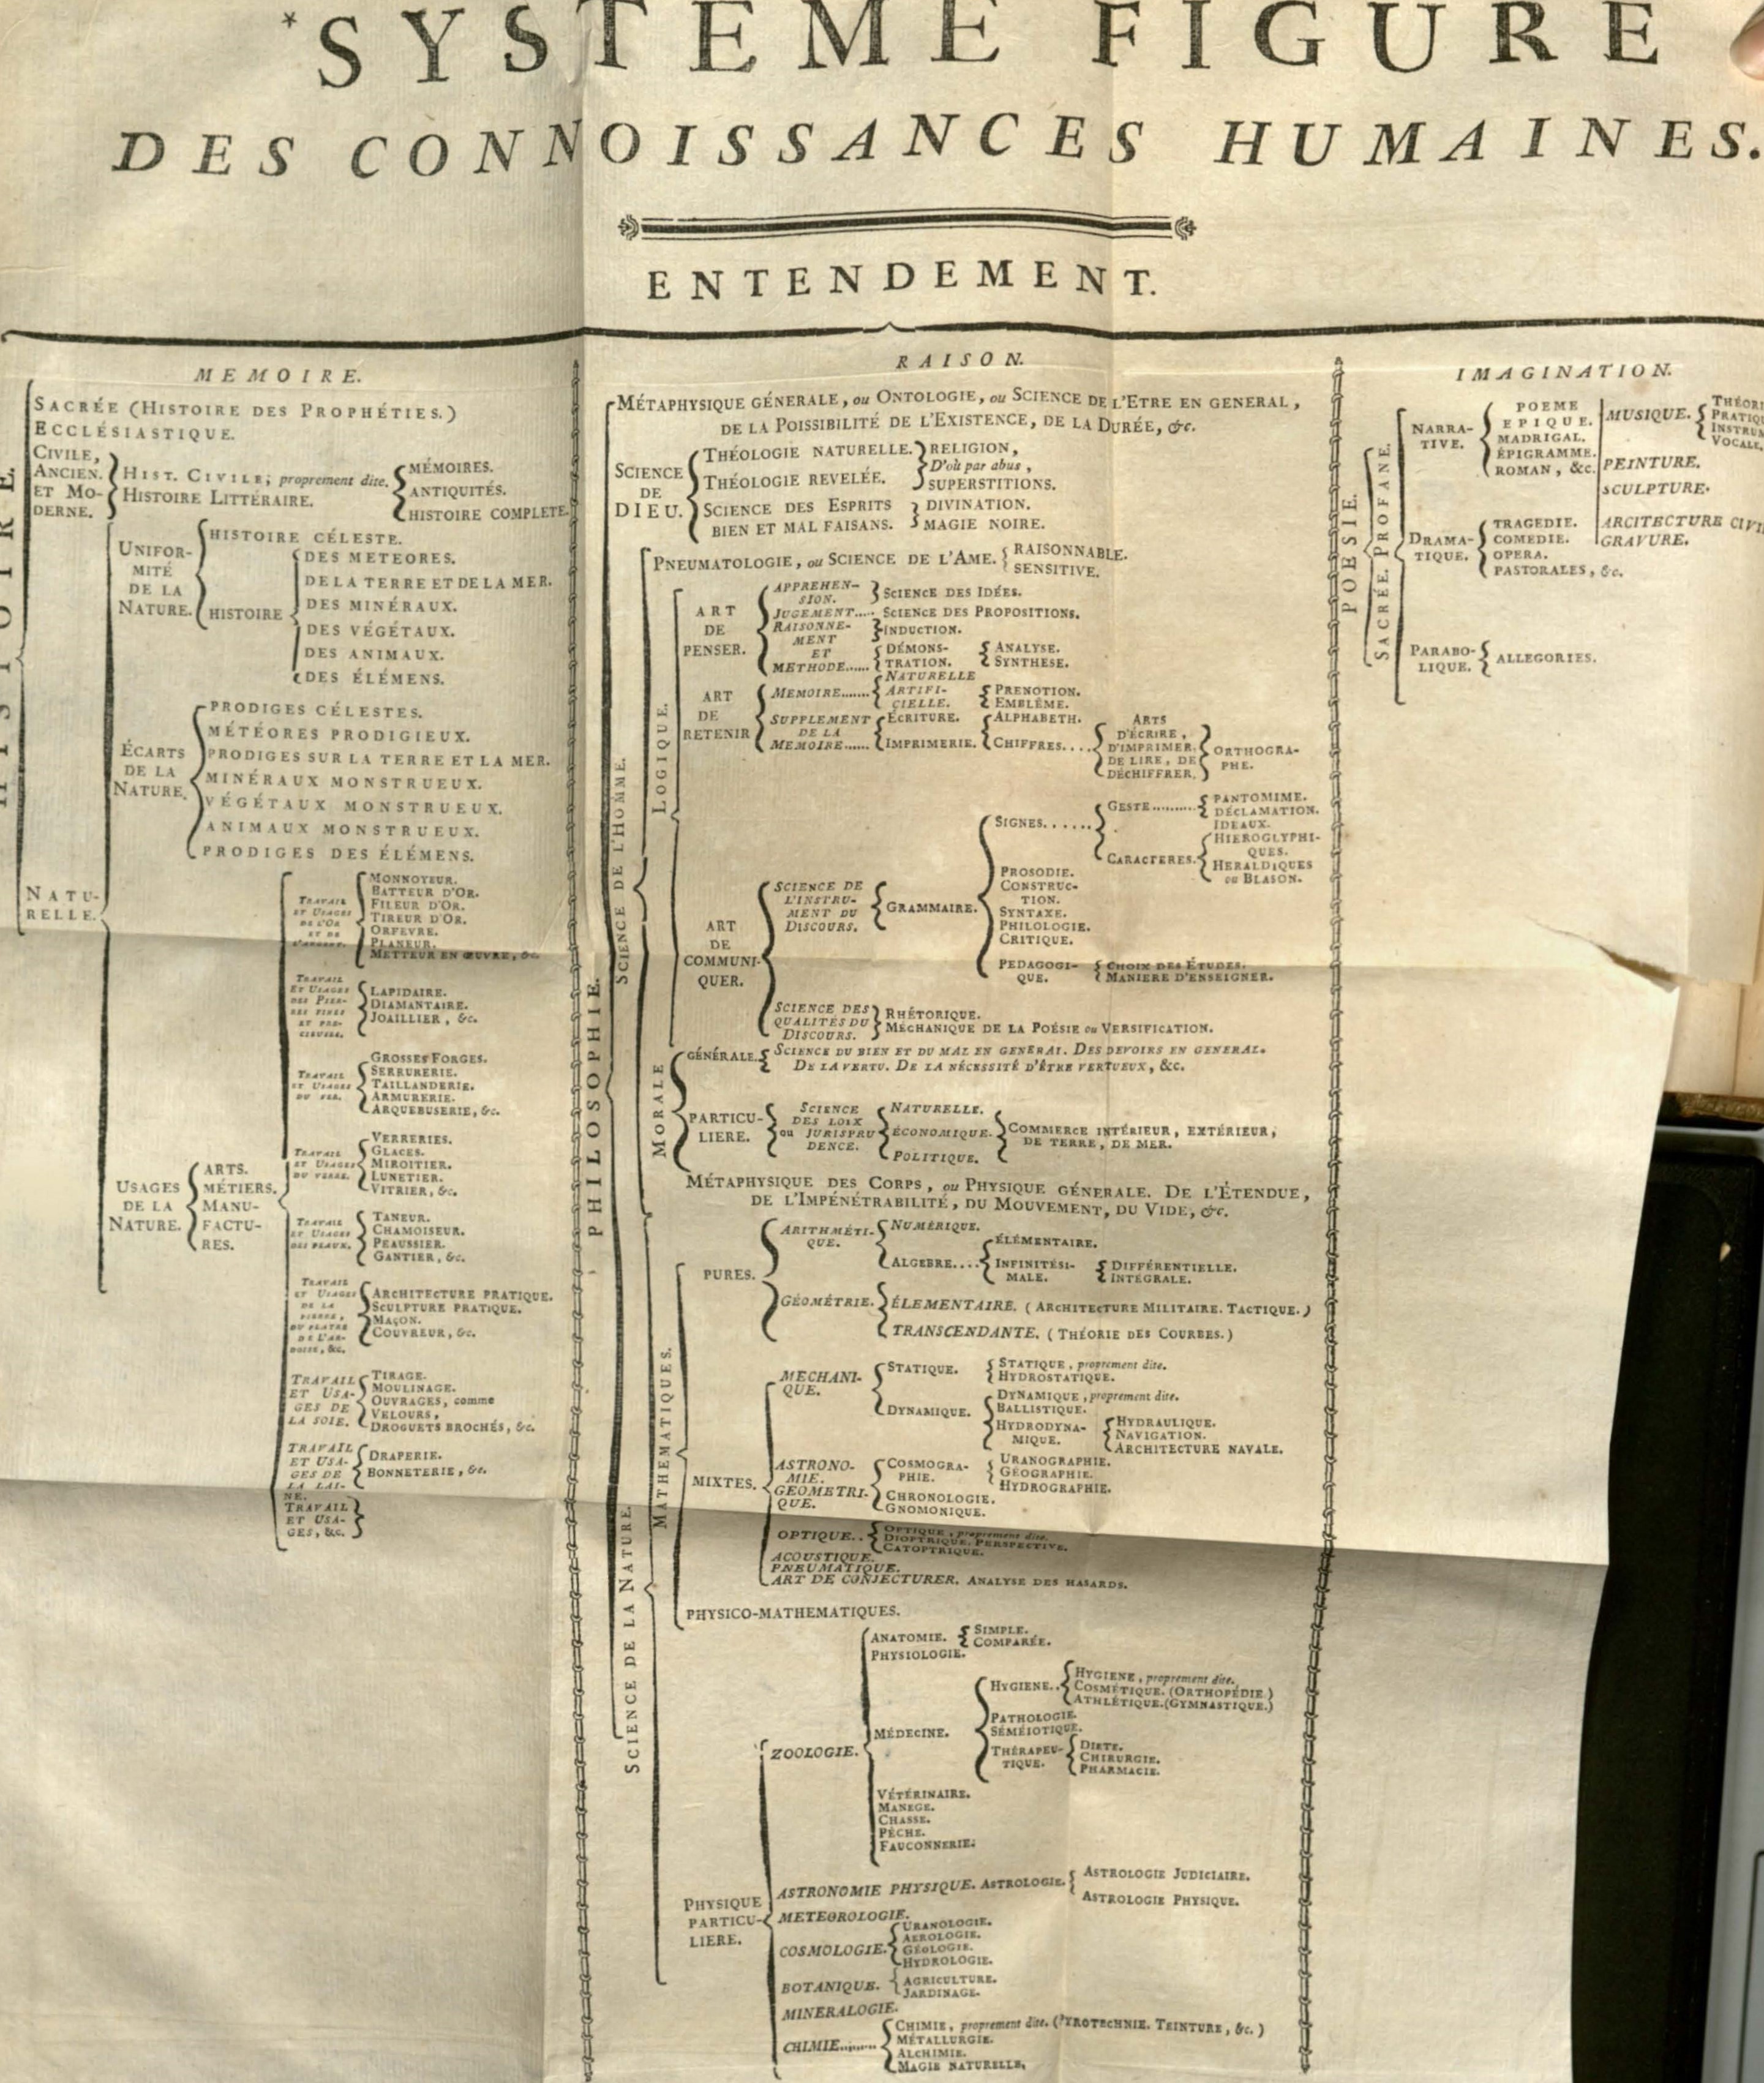 *SYSTEME FIGURE
DES CONNOISSANCES HUMAINES.
ENTENDEMENT.
MEMOIRE.
SACRÉE (HISTOIRE DES PROPHÉTIES.)
ECCLÉSIASTIQUE.
CIVILE,
ANCIEN.
ET MO-
DERNE.
HIST. CIVILE, proprement dite.
HISTOIRE LITTÉRAIRE.
MÉMOIRES.
ANTIQUITÉS.
HISTOIRE COMPLETE.
NATU-
RELLE.
UNIFOR-
MITÉ
DE LA
NATURE.
HISTOIRE CÉLESTE.
HISTOIRE
DES METEORES.
DE LA TERRE ET DE LA MER.
DES MINÉRAUX.
DES VÉGÉTAUX.
DES ANIMAUX.
DES ÉLÉMENS.
ÉCARTS
DE LA
NATURE.
PRODIGES CÉLESTES.
MÉTÉORES PRODIGIEUX.
PRODIGES SUR LA TERRE ET LA MER.
MINÉRAUX MONSTRUEUX.
VÉGÉTAUX MONSTRUEUX.
ANIMAUX MONSTRUEUX.
PRODIGES DES ÉLÉMENS.
USAGES
DE LA
NATURE.
ARTS.
MÉTIERS.
MANU-
FACTU-
RES.
TRAVAIL
ET USAGES
DE L'OR
ET DE
L'ARGENT.
MONNOYEUR.
BATTEUR D'OR.
FILEUR D'OR.
TIREUR D'OR.
ORFEVRE.
PLANEUR.
METTEUR EN ŒUVRE, &c.
TRAVAIL
ET USAGES
DES PIER-
RES FINES
ET PRÉ-
CIEUSES.
LAPIDAIRE.
DIAMANTAIRE.
JOAILLIER, &c.
TRAVAIL
ET USAGES
DU FER.
GROSSES FORGES.
SERRURERIE.
TAILLANDERIE.
ARMURERIE.
ARQUEBUSERIE, &c.
TRAVAIL
ET USAGES
DU VERRE.
VERRERIES.
GLACES.
MIROITIER.
LUNETIER.
VITRIER, &c.
TRAVAIL
ET USAGES
DES PEAUX.
TANEUR.
CHAMOISEUR.
PEAUSSIER.
GANTIER, &c.
TRAVAIL
ET USAGES
DE LA
PIERRE,
DU PLATRE
DE L'AR-
DOISE, &c.
ARCHITECTURE PRATIQUE.
SCULPTURE PRATIQUE.
MAÇON.
COUVREUR, &c.
TRAVAIL
ET USA-
GES DE
LA SOIE.
TIRAGE.
MOULINAGE.
OUVRAGES, comme
VELOURS,
DROGUETS BROCHÉS, &c.
TRAVAIL
ET USA-
GES DE
LA LAI-
NE.
DRAPERIE.
BONNETERIE, &c.
TRAVAIL
ET USA-
GES, &c.
RAISON.
PHILOSOPHIE.
MÉTAPHYSIQUE GÉNERALE, ou ONTOLOGIE, ou SCIENCE DE L'ETRE EN GENERAL,
DE LA POISSIBILITÉ DE L'EXISTENCE, DE LA DURÉE, &c.
SCIENCE
DE
DIEU.
THÉOLOGIE NATURELLE.
THÉOLOGIE REVELÉE.
RELIGION,
D'où par abus,
SUPERSTITIONS.
SCIENCE DES ESPRITS
BIEN ET MAL FAISANS.
DIVINATION.
MAGIE NOIRE.
SCIENCE DE L'HOMME.
PNEUMATOLOGIE, ou SCIENCE DE L'AME.
RAISONNABLE.
SENSITIVE.
LOGIQUE.
ART
DE
PENSER.
APPREHEN-
SION.
SCIENCE DES IDÉES.
JUGEMENT..... SCIENCE DES PROPOSITIONS.
RAISONNE-
MENT
INDUCTION.
ET
METHODE......
DÉMONS-
TRATION.
ANALYSE.
SYNTHESE.
ART
DE
RETENIR
MEMOIRE.......
NATURELLE
ARTIFI-
CIELLE.
PRENOTION.
EMBLÊME.
SUPPLEMENT
DE LA
MEMOIRE......
ÉCRITURE.
IMPRIMERIE.
ALPHABETH.
CHIFFRES....
ARTS
D'ÉCRIRE,
D'IMPRIMER,
DE LIRE, DE
DÉCHIFFRER.
ORTHOGRA-
PHE.
ART
DE
COMMUNI-
QUER.
SCIENCE DE
L'INSTRU-
MENT DU
DISCOURS.
GRAMMAIRE.
SIGNES......
GESTE..........
PANTOMIME.
DÉCLAMATION.
CARACTERES.
IDEAUX.
HIEROGLYPHI-
QUES.
HERALDIQUES
ou BLASON.
PROSODIE.
CONSTRUC-
TION.
SYNTAXE.
PHILOLOGIE.
CRITIQUE.
PEDAGOGI-
QUE.
CHOIX DES ÉTUDES.
MANIERE D'ENSEIGNER.
SCIENCE DES
QUALITÉS DU
DISCOURS.
RHÉTORIQUE.
MÉCHANIQUE DE LA POÉSIE ou VERSIFICATION.
MORALE
GÉNÉRALE.
SCIENCE DU BIEN ET DU MAL EN GENERAL. DES DEVOIRS EN GENERAL.
DE LA VERTU. DE LA NÉCESSITÉ D'ÊTRE VERTUEUX, &c.
PARTICU-
LIERE.
SCIENCE
DES LOIX
ou JURISPRU
DENCE.
NATURELLE.
ÉCONOMIQUE.
POLITIQUE.
COMMERCE INTÉRIEUR, EXTÉRIEUR,
DE TERRE, DE MER.
SCIENCE DE LA NATURE.
MÉTAPHYSIQUE DES CORPS, ou PHYSIQUE GÉNERALE. DE L'ÉTENDUE,
DE L'IMPÉNÉTRABILITÉ, DU MOUVEMENT, DU VIDE, &c.
MATHEMATIQUES.
PURES.
ARITHMÉTI-
QUE.
NUMÉRIQUE.
ALGEBRE....
ÉLÉMENTAIRE.
INFINITÉSI-
MALE.
DIFFÉRENTIELLE.
INTÉGRALE.
GÉOMÉTRIE.
ÉLEMENTAIRE. (ARCHITECTURE MILITAIRE. TACTIQUE.)
TRANSCENDANTE. (THÉORIE DES COURBES.)
MIXTES.
MECHANI-
QUE.
STATIQUE.
STATIQUE, proprement dite.
HYDROSTATIQUE.
DYNAMIQUE.
DYNAMIQUE, proprement dite.
BALLISTIQUE.
HYDRODYNA-
MIQUE.
HYDRAULIQUE.
NAVIGATION.
ARCHITECTURE NAVALE.
ASTRONO-
MIE.
GEOMETRI-
QUE.
COSMOGRA-
PHIE.
URANOGRAPHIE.
GÉOGRAPHIE.
HYDROGRAPHIE.
CHRONOLOGIE.
GNOMONIQUE.
OPTIQUE..
OPTIQUE, proprement dite.
DIOPTRIQUE. PERSPECTIVE.
CATOPTRIQUE.
ACOUSTIQUE.
PNEUMATIQUE.
ART DE CONJECTURER. ANALYSE DES HASARDS.
PHYSICO-MATHEMATIQUES.
PHYSIQUE
PARTICU-
LIERE.
ZOOLOGIE.
ANATOMIE.
SIMPLE.
COMPARÉE.
PHYSIOLOGIE.
MÉDECINE.
HYGIENE..
HYGIENE, proprement dite.
COSMÉTIQUE. (ORTHOPÉDIE.)
ATHLÉTIQUE. (GYMNASTIQUE.)
PATHOLOGIE.
SÉMÉIOTIQUE.
THÉRAPEU-
TIQUE.
DIETE.
CHIRURGIE.
PHARMACIE.
VÉTÉRINAIRE.
MANEGE.
CHASSE.
PÊCHE.
FAUCONNERIE.
ASTRONOMIE PHYSIQUE. ASTROLOGIE.
ASTROLOGIE JUDICIAIRE.
ASTROLOGIE PHYSIQUE.
METEOROLOGIE.
COSMOLOGIE.
URANOLOGIE.
AEROLOGIE.
GÉOLOGIE.
HYDROLOGIE.
BOTANIQUE.
AGRICULTURE.
JARDINAGE.
MINERALOGIE.
CHIMIE.........
CHIMIE, proprement dite. (PYROTECHNIE. TEINTURE, &c.)
MÉTALLURGIE.
ALCHIMIE.
MAGIE NATURELLE.
IMAGINATION.
POESIE.
SACRÉE. PROFANE.
NARRA-
TIVE.
POEME
EPIQUE.
MADRIGAL.
ÉPIGRAMME.
ROMAN, &c.
DRAMA-
TIQUE.
TRAGEDIE.
COMEDIE.
OPERA.
PASTORALES, &c.
PARABO-
LIQUE.
ALLEGORIES.
MUSIQUE.
THÉORI
PRATIQU
INSTRUM
VOCALE.
PEINTURE.
SCULPTURE.
ARCITECTURE CIVI
GRAVURE.